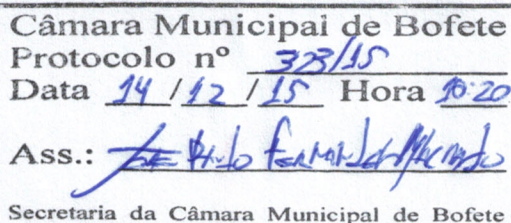 Câmara Municipal de Bofete
Protocolo nº 323/15
Data 14 / 12 / 15 Hora 10:20
Ass.:
Secretaria da Câmara Municipal de Bofete